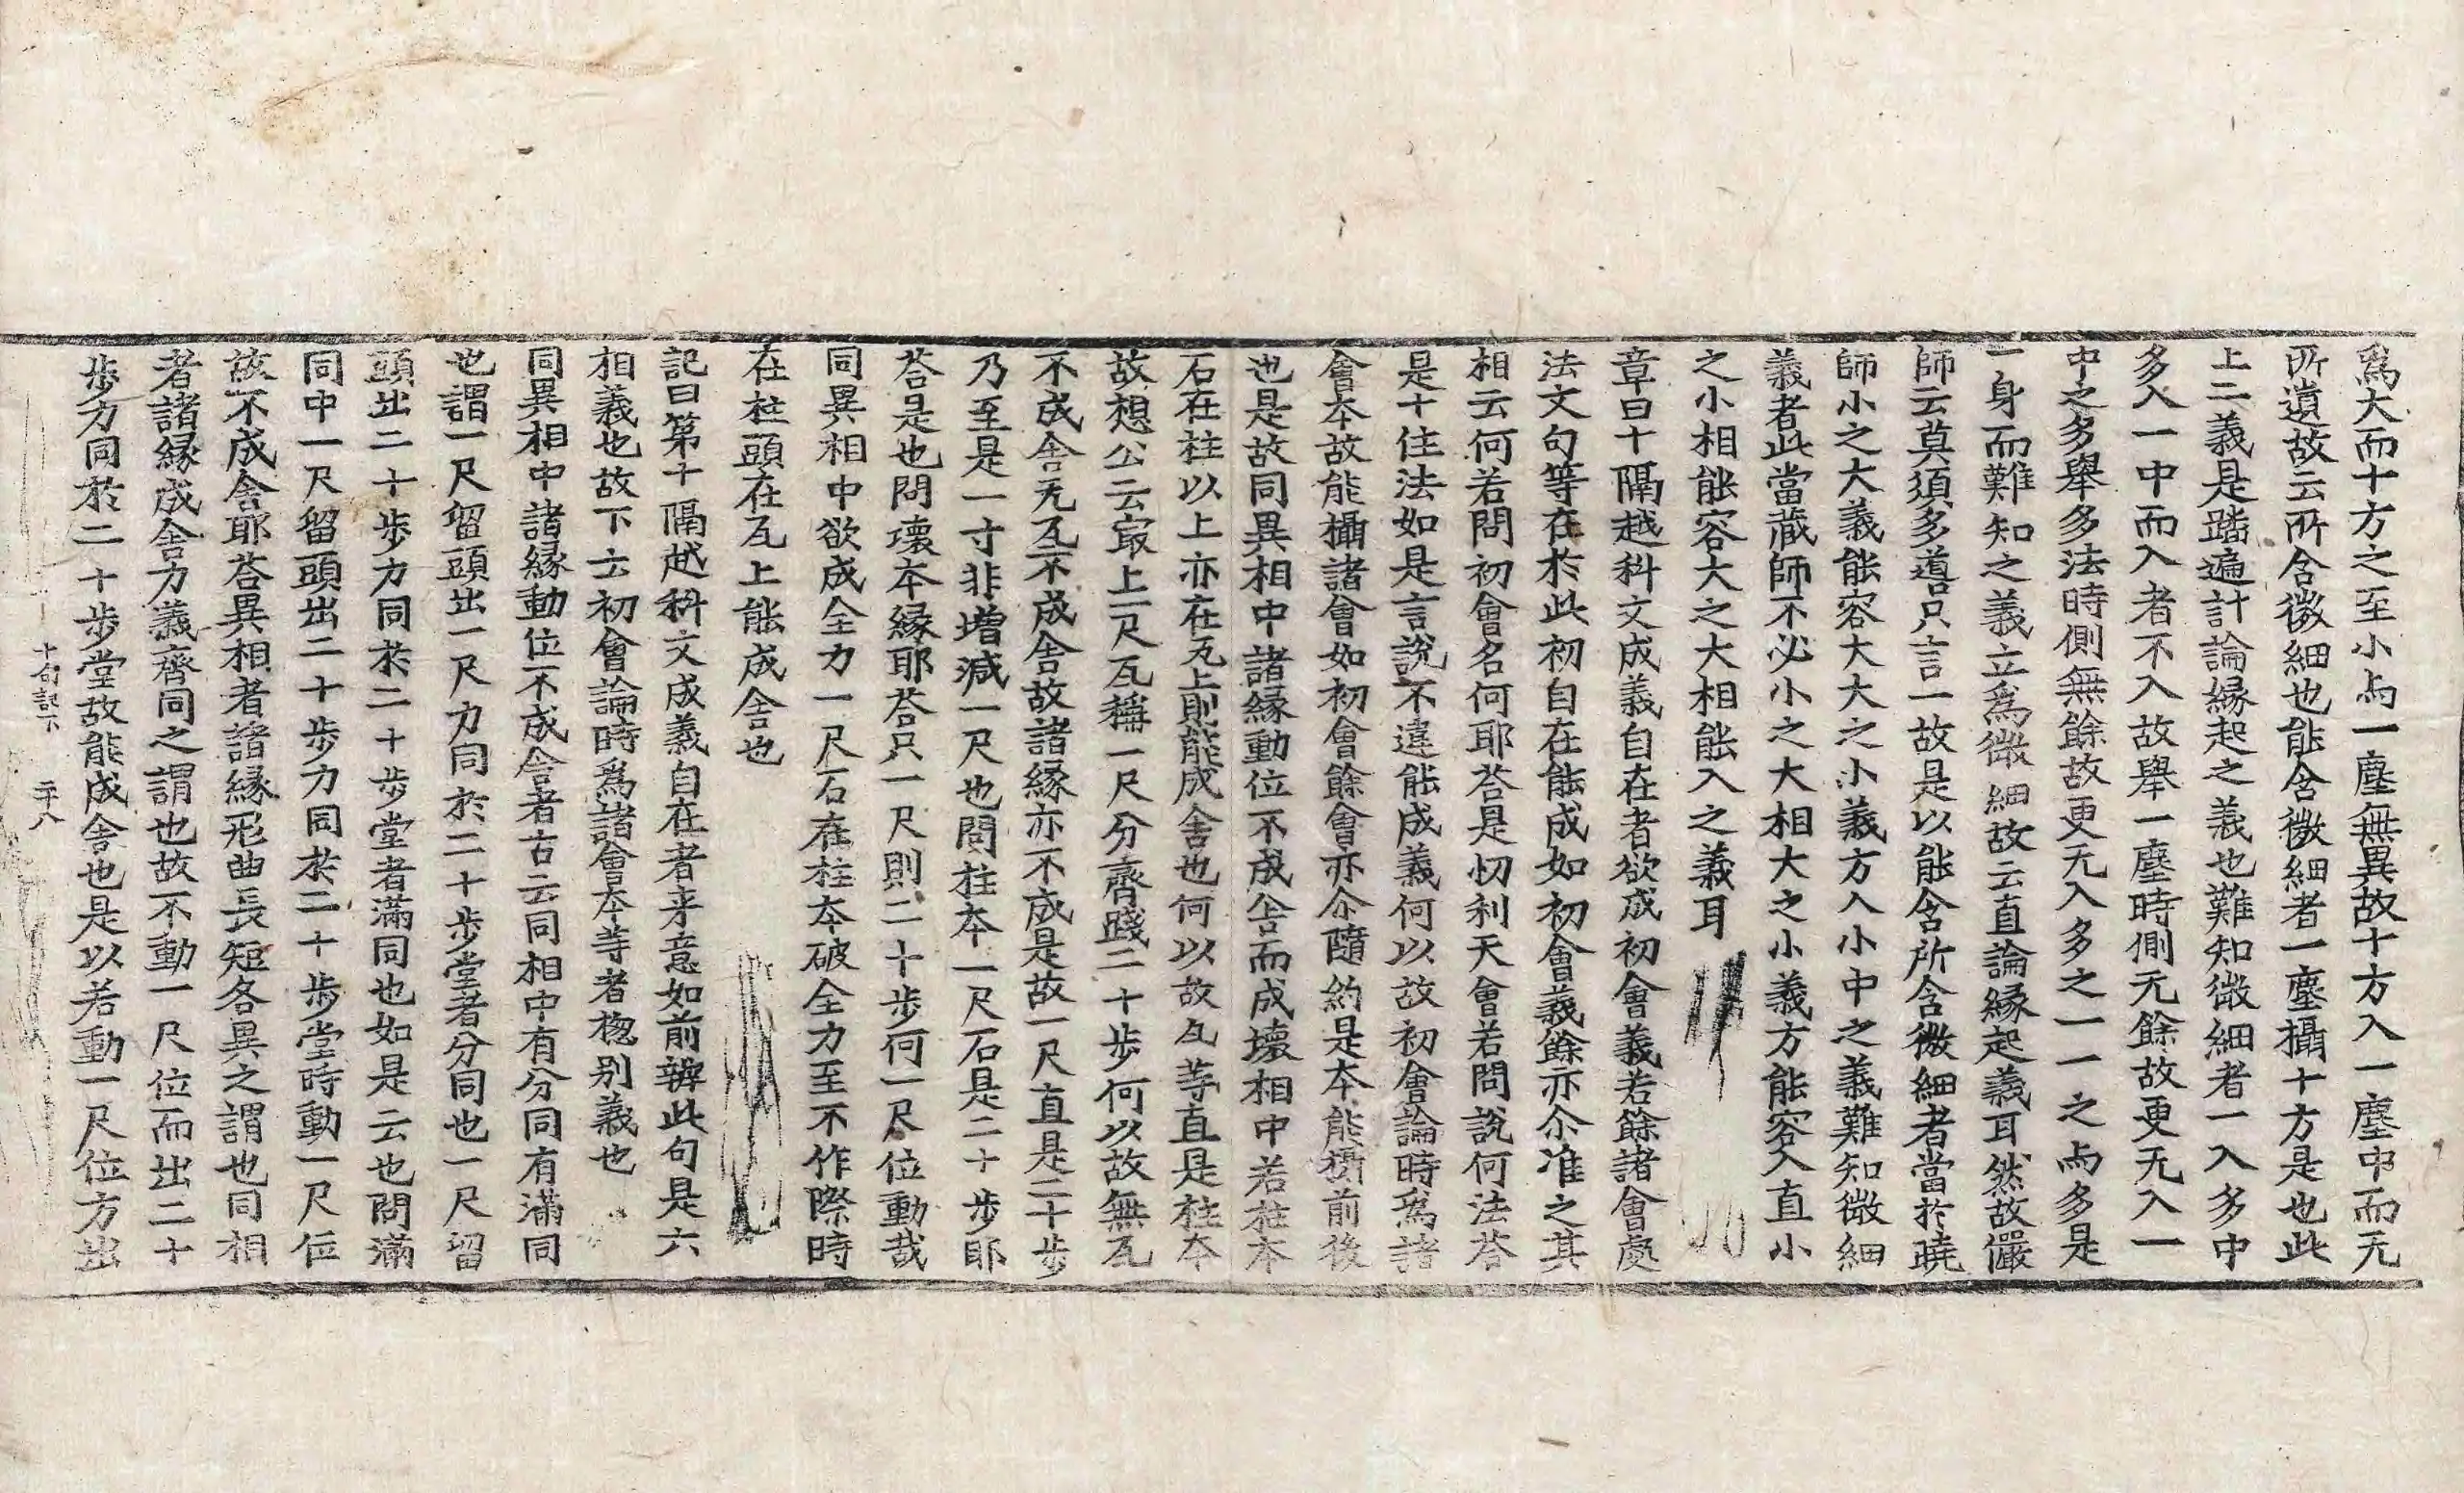 爲大而十方之至小与一塵無異故十方入一塵中而无
所遺故云所含微細也能含微細者一塵攝十方是也此
上二義是踏遍計論縁起之義也難知微細者一入多中
多入一中而入者不入故舉一塵時側无餘故更无入一
中之多舉多法時側無餘故更无入多之一一之与多是
一身而難知之義立爲微細故云直論縁起義耳然故儼
師云莫須多噵只言一故是以能含所含微細者當於曉
師小之大義能容大大之小義方入小中之義難知微細
義者此當藏師不必小之大相大之小義方能容入直小
之小相能容大之大相能入之義耳
章曰十隔越科文成義自在者欲成初會義若餘諸會處
法文句等在於此初自在能成如初會義餘亦尒准之其
相云何若問初會名何耶荅是忉利天會若問說何法荅
是十住法如是言說不違能成義何以故初會論時爲諸
會夲故能攝諸會如初會餘會亦尒隨約是夲能攝前後
也是故同異相中諸縁動位不成舍而成壞相中若柱夲
石在柱以上亦在瓦上則能成舍也何以故瓦等直是柱夲
故想公云㝡上一尺瓦稱一尺分齊踐二十步何以故無瓦
不成舍无瓦不成舍故諸縁亦不成是故一尺直是二十步
乃至是一寸非增減一尺也問柱夲一尺石是二十步耶
荅是也問壞夲縁耶荅只一尺則二十步何一尺位動哉
同異相中欲成全力一尺石在柱夲破全力至不作際時
在柱頭在瓦上能成舍也
記曰第十隔越科文成義自在者來意如前辨此句是六
相義也故下云初會論時爲諸會夲等者揔别義也
同異相中諸縁動位不成舍者古云同相中有分同有滿同
也謂一尺留頭出一尺力同於二十步堂者分同也一尺留
頭出二十步力同於二十步堂者滿同也如是云也問滿
同中一尺留頭出二十步力同於二十步堂時動一尺位
故不成舍耶荅異相者諸縁形曲長短各異之謂也同相
者諸縁成舍力義齊同之謂也故不動一尺位而出二十
步方同於二十步堂故能成舍也是以若動一尺位方出
十句記下 二十八